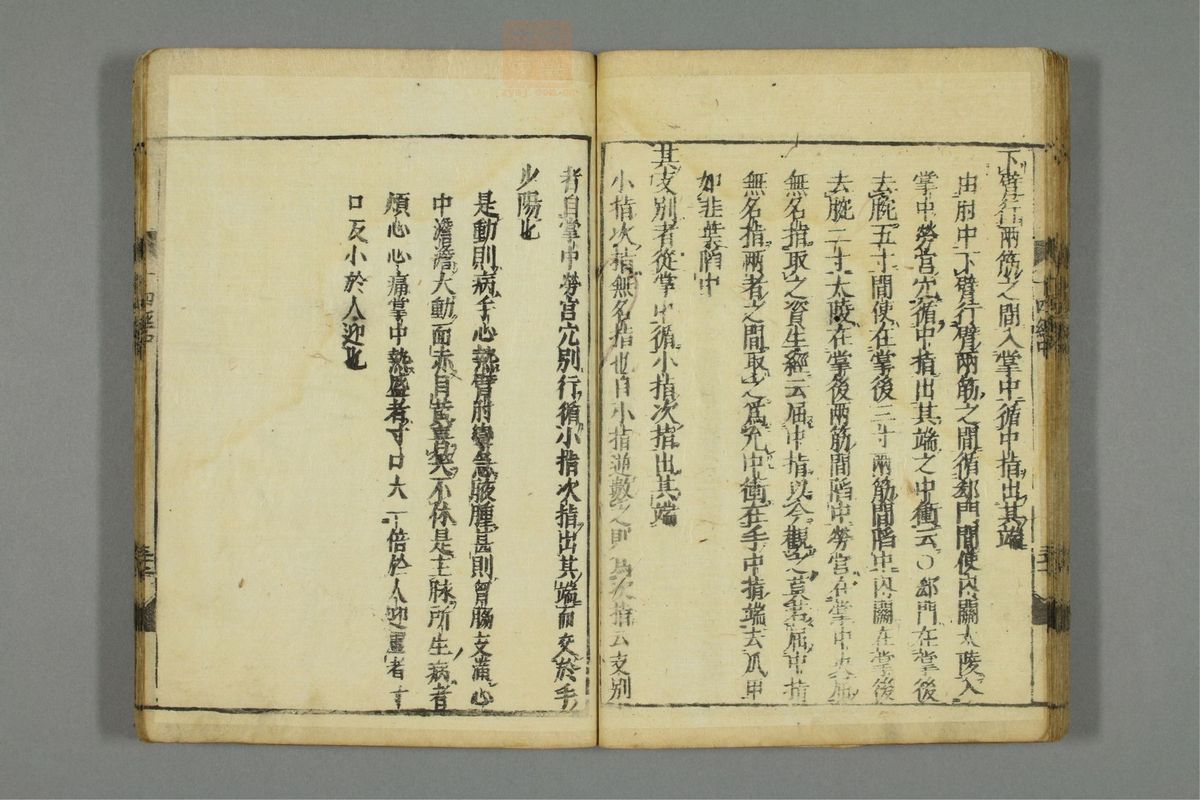 下臂行兩筋之間入掌中循中指出其端
由肘中下臂行臂兩筋之間循郄門間使内關大陵入
掌中勞宮穴循中指出其端之中衝云○郄門在掌後
去腕五寸間使在掌後三寸兩筋間陷中内關在掌後
去腕二寸大陵在掌後兩筋間陷中勞宮在掌中央屈
無名指取之資生經云屈中指以今觀之莫若屈中指
無名指兩者之間取之爲允中衝在手中指端去爪甲
如韭葉陷中
其支別者從掌中循小指次指出其端
小指次指無名指也自小指逆數之則爲次指云支別
者自掌中勞宮穴別行循小指次指出其端而交於手
少陽也
是動則病手心熱臂肘攣急腋腫甚則胷脇支滿心
中澹澹大動面赤目黃喜笑不休是主脉所生病者
煩心心痛掌中熱盛者寸口大一倍於人迎虛者寸
口反小於人迎也
十四經中
zysj.com.cn